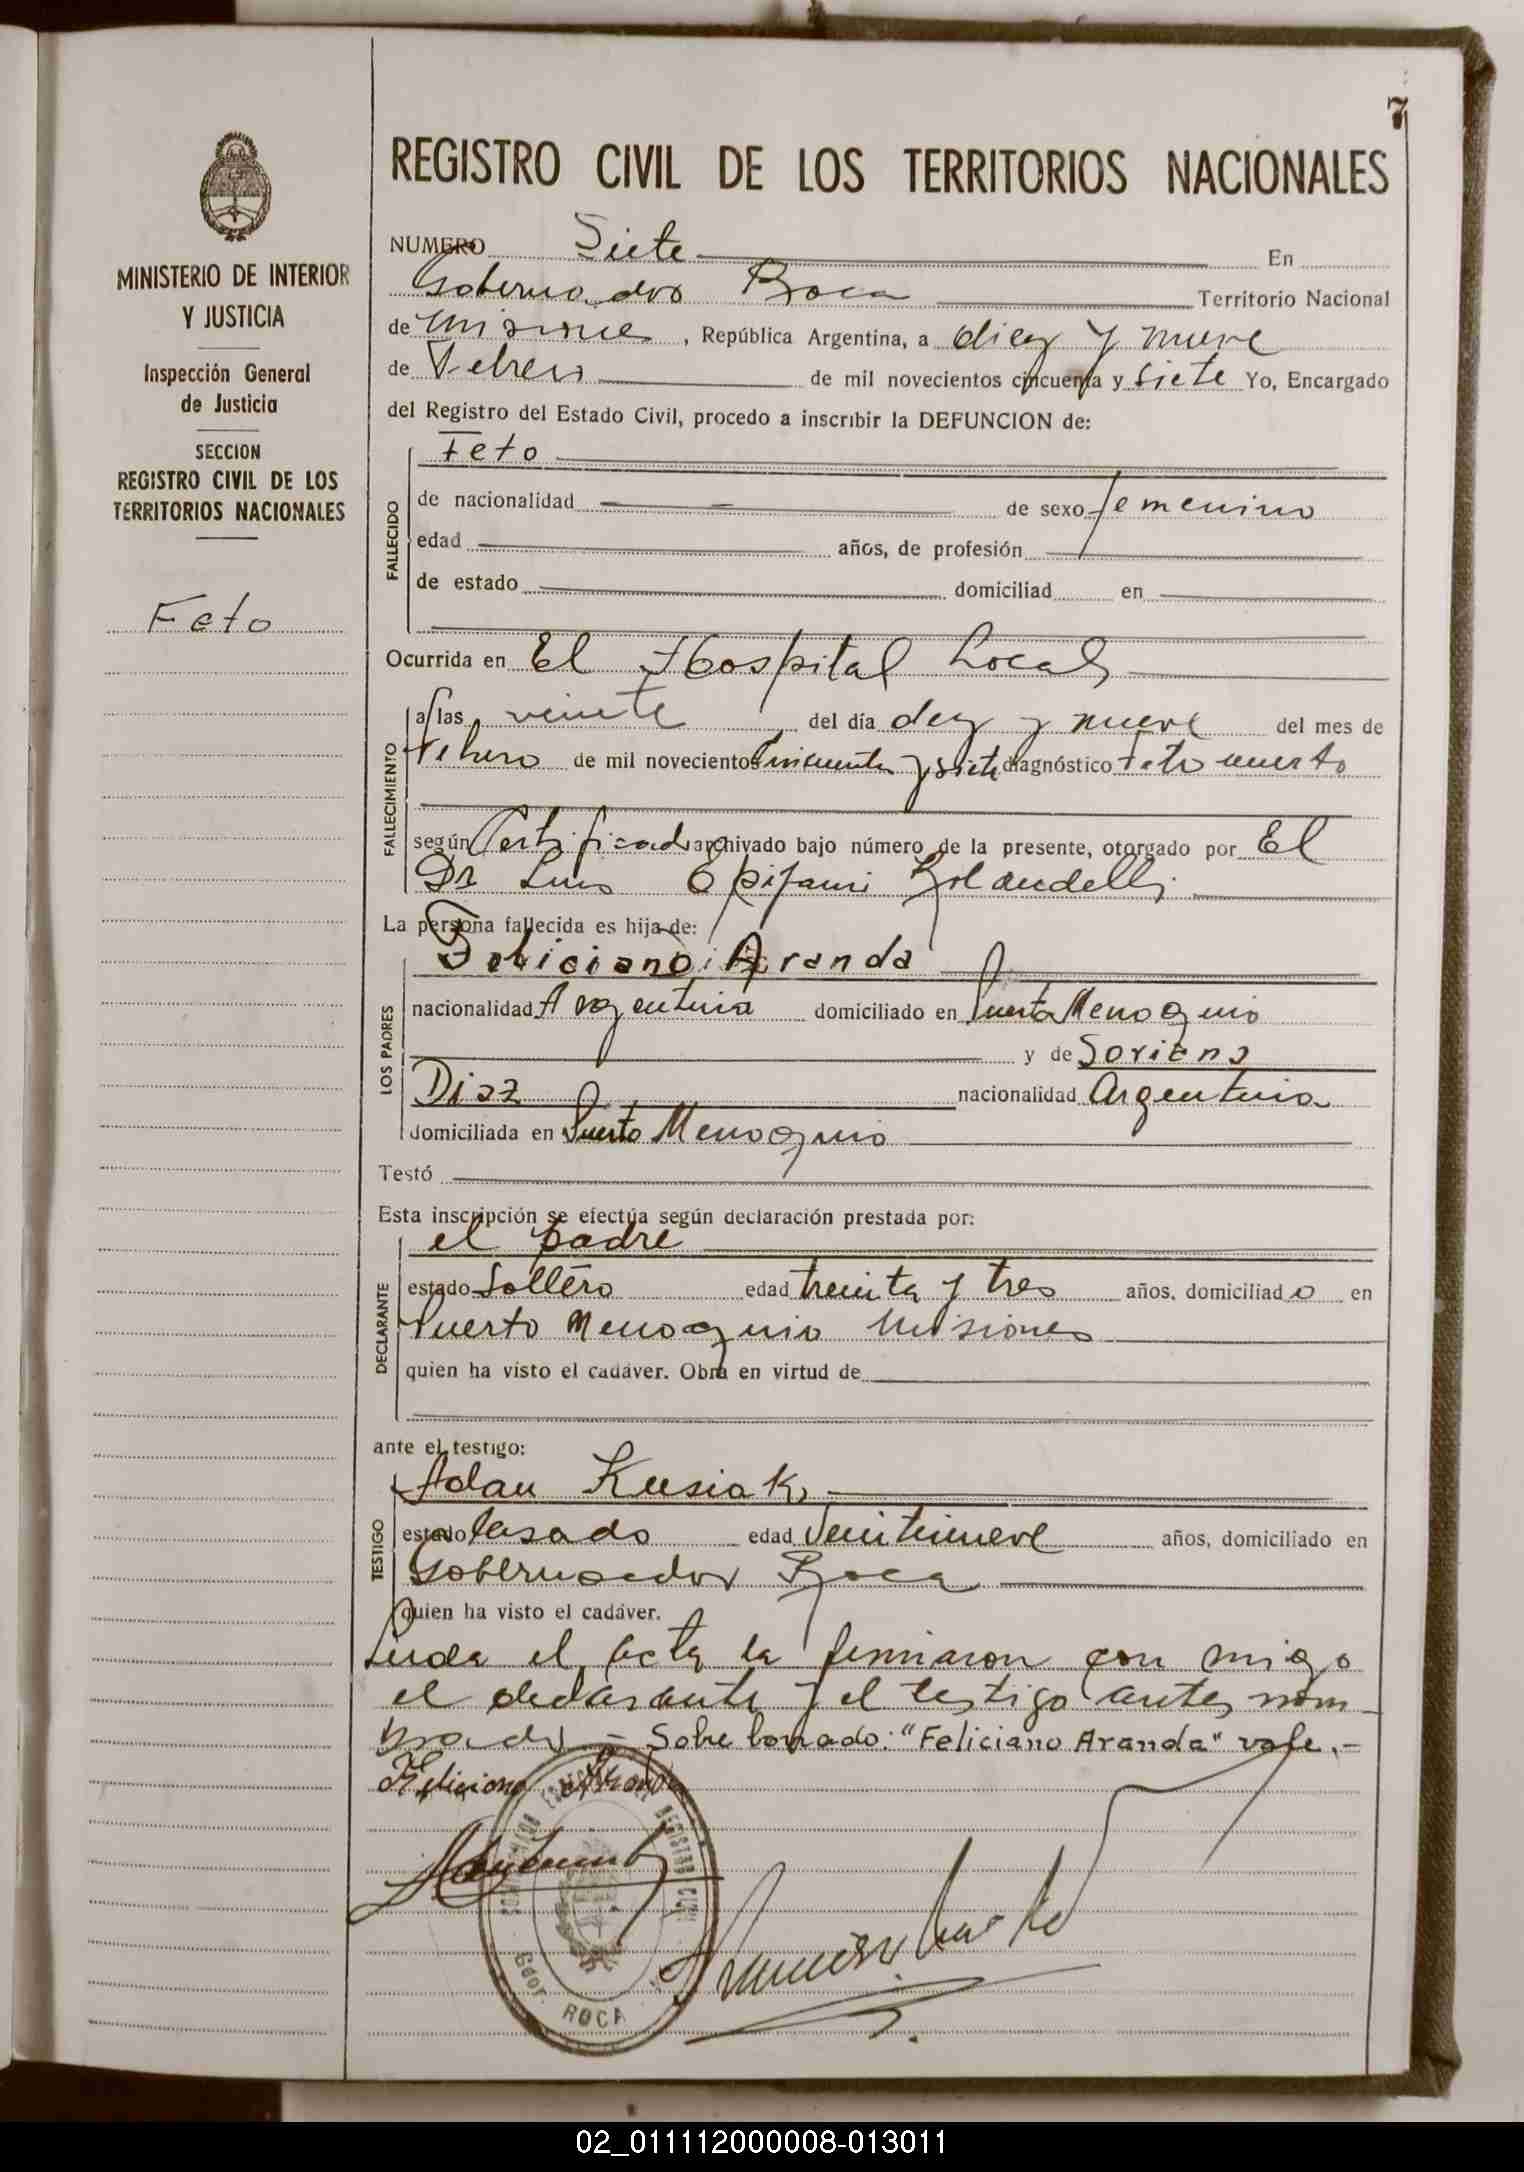 7
REGISTRO CIVIL DE LOS TERRITORIOS NACIONALES
MINISTERIO DE INTERIOR
Y JUSTICIA
Inspección General
de Justicia
SECCION
REGISTRO CIVIL DE LOS
TERRITORIOS NACIONALES
Feto
NUMERO Siete En
Gobernador Roca Territorio Nacional
de Misiones, República Argentina, a diez y nueve
de Febrero de mil novecientos cincuenta y siete Yo, Encargado
del Registro del Estado Civil, procedo a inscribir la DEFUNCION de:
FALLECIDO
Feto
de nacionalidad de sexo femenino
edad años, de profesión
de estado domiciliad en
Ocurrida en El Hospital Local
FALLECIMIENTO
a las veinte del día diez y nueve del mes de
Febrero de mil novecientos cincuenta y siete diagnóstico Feto muerto
según Certificado archivado bajo número de la presente, otorgado por El
Dr Luis Epifanio Rolandelli
La persona fallecida es hija de:
LOS PADRES
Feliciano Aranda
nacionalidad Argentina domiciliado en Puerto Menoquio
y de Soriana
Diaz nacionalidad Argentina
domiciliada en Puerto Menoquio
Testó
Esta inscripción se efectúa según declaración prestada por:
DECLARANTE
el padre
estado Soltero edad treinta y tres años, domiciliado en
Puerto Menoquio Misiones
quien ha visto el cadáver. Obra en virtud de
ante el testigo:
TESTIGO
Adan Kusiak
estado Casado edad Veintinueve años, domiciliado en
Gobernador Roca
quien ha visto el cadáver.
Leida el acta la firmaron con migo
el declarante y el testigo antes nom
brado - Sobre borrado: "Feliciano Aranda" vale.-
Feliciano Aranda
REGISTRO CIVIL
Gdor. ROCA
02_011112000008-013011